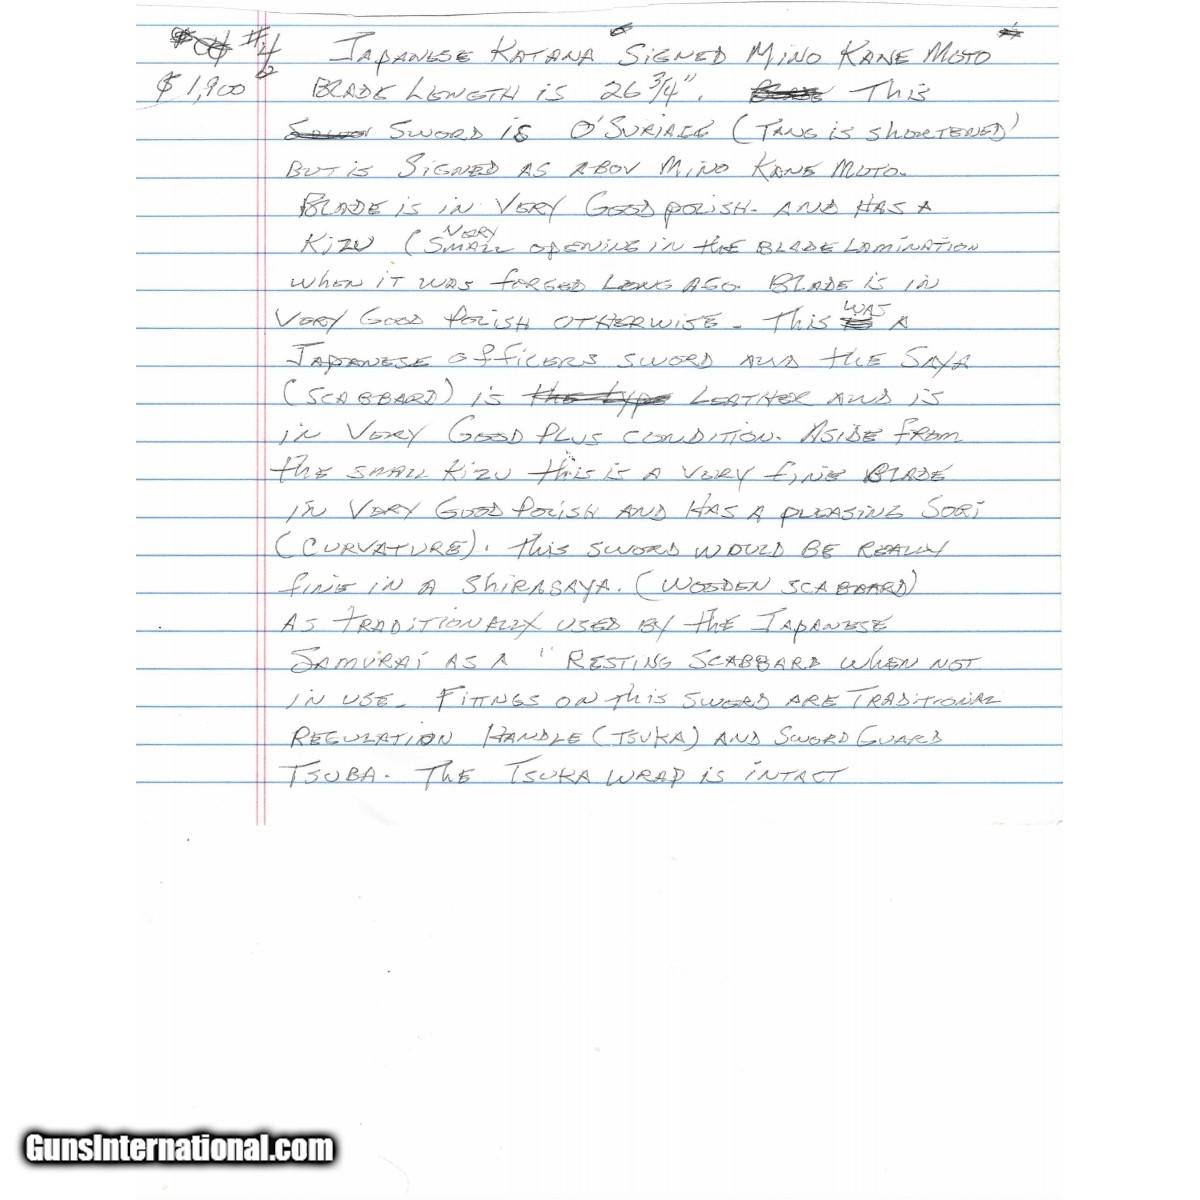 #4 JAPANESE KATANA SIGNED MINO KANE MOTO
$1,900 BLADE LENGTH IS 26 3/4". This
SWORD IS O'SURIAGE (TANG IS ShORTENED)
BUT IS SIGNED AS ABOV MINO KANE MOTO.
BLADE IS IN VERY GOOD POLISH- AND HAS A
KIZU (VERY SMALL OPENING IN thE BLADE LAMINATION
WHEN IT WAS fORGED LONG AGO. BLADE IS IN
VERY GOOD POLISH OTHERWISE- This WAS A
JAPANESE OffICERS SWORD AND thE SAYA
(SCABBARD) IS LEATHER AND IS
IN VERY GOOD PLUS CONDITION. ASIDE FROM
thE SMALL KIZU this IS A VERY fINE BLADE
IN VERY GOOD POLISH AND HAS A PLEASING SORI
(CURVATURE). this SWORD WOULD BE REALLY
fINE IN A ShIRASAYA. (WOODEN SCABBARD)
AS TRADITIONALLY USED BY thE JAPANESE
SAMURAI AS A "RESTING SCABBARD WHEN NOT
IN USE- FITTNGS ON this SWORD ARE TRADITIONAL
REGULATION HANDLE (TSUKA) AND SWORD GUARD
TSUBA. THE TSUKA WRAP IS INTACT
GunsInternational.com